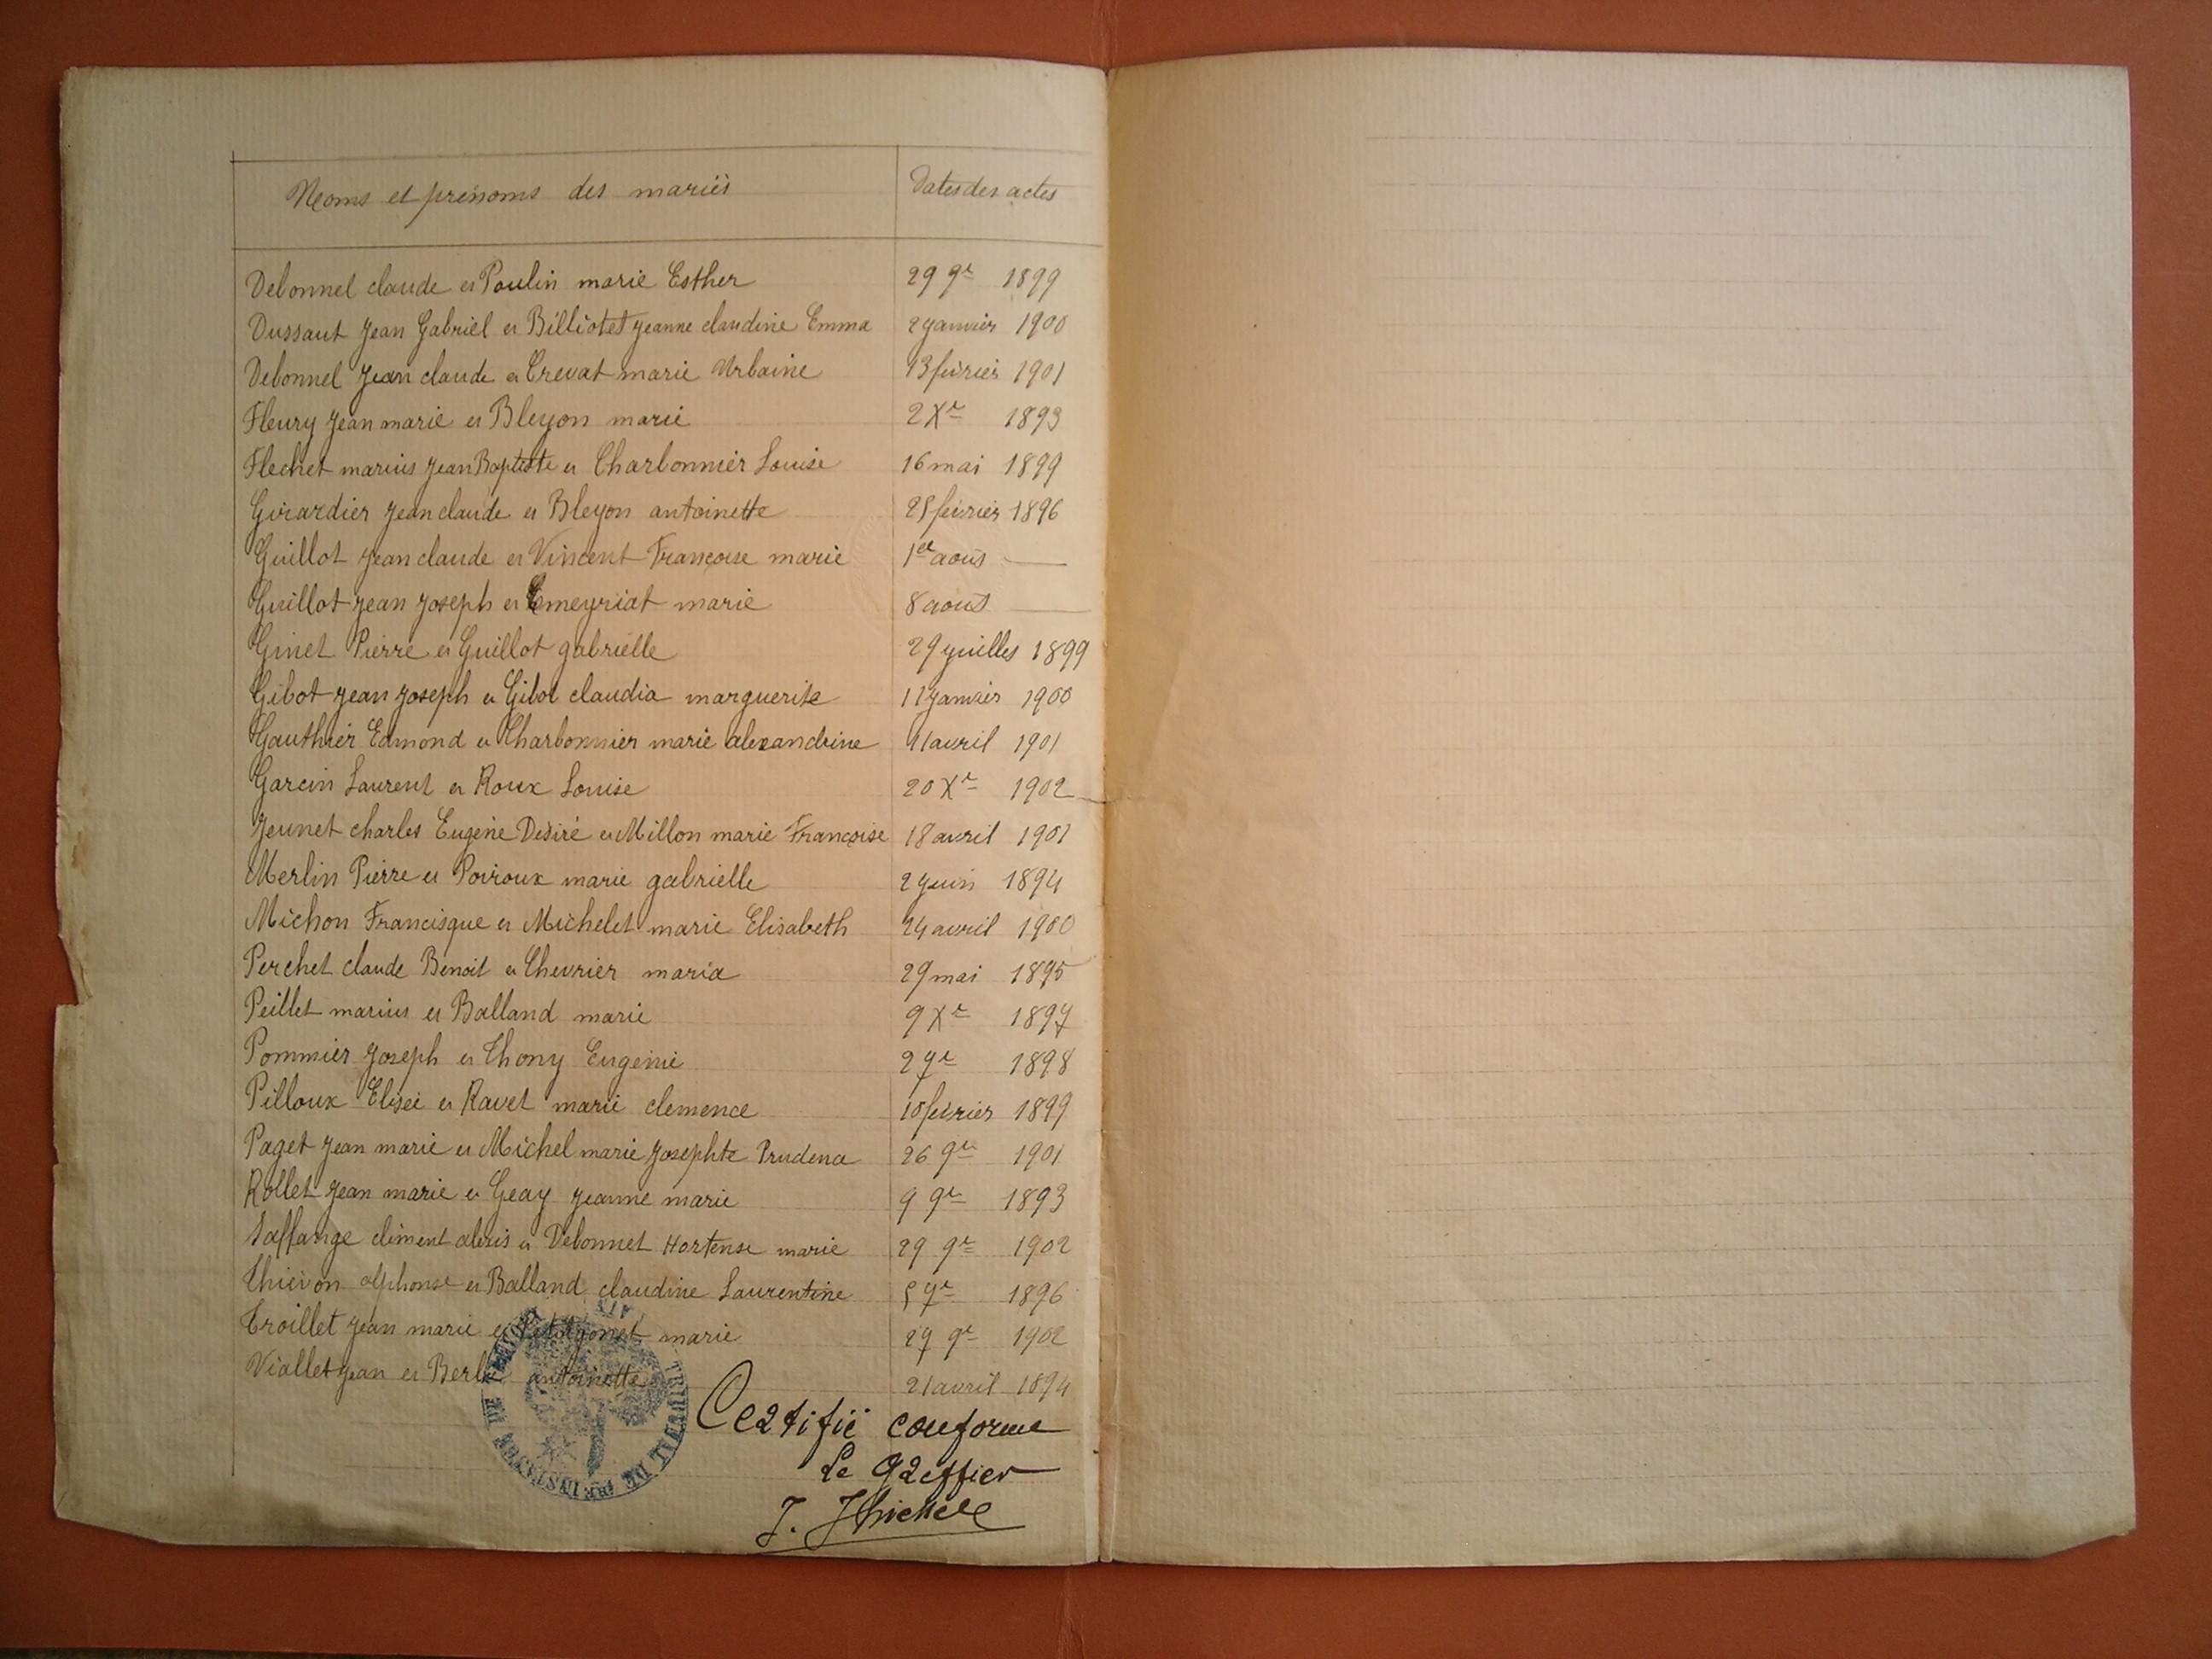 Noms et prénoms des mariés Dates des actes
Debonnel claude et Poulin marie Esther 29 9re 1899
Dussaut Jean Gabriel et Billiotet Jeanne claudine Emma 2 janvier 1900
Debonnel Jean claude et Crevat marie Urbaine 13 février 1901
Fleury Jean marie et Bleyon marie 2 Xre 1893
Flechet marius Jean Baptiste et Charbonnier Louise 16 mai 1899
Girardier Jean claude et Bleyon antoinette 25 février 1896
Guillot Jean claude et Vincent Françoise marie 1er août —
Guillot Jean Joseph et Emeyriat marie 8 août —
Ginet Pierre et Guillot gabrielle 29 juillet 1899
Gibot Jean Joseph et Gibot claudia marguerite 11 janvier 1900
Gauthier Edmond et Charbonnier marie alexandrine 11 avril 1901
Garcin Laurent et Roux Louise 20 Xre 1902
Jeunet charles Eugène Désiré et Millon marie Françoise 18 avril 1901
Merlin Pierre et Poiroux marie gabrielle 2 juin 1894
Michon Francisque et Michelet marie Elisabeth 24 avril 1900
Perchet claude Benoit et Chevrier maria 29 mai 1895
Peillet marius et Balland marie 9 Xre 1897
Pommier Joseph et Thony Eugénie 2 7re 1898
Pilloux Elisée et Ravet marie clemence 10 février 1899
Paget Jean marie et Michel marie Josephte Prudence 26 9re 1901
Rollet Jean marie et Geay Jeanne marie 9 9re 1893
Saffange clément alexis et Debonnet Hortense marie 29 9re 1902
Thiévon alphonse et Balland claudine Laurentine 5 7re 1896
Troillet Jean marie et marie 27 9re 1902
Viallet Jean et antoinette 21 avril 1894
Certifié conforme
Le Greffier
TRIBUNAL DE 1RE INSTANCE DE